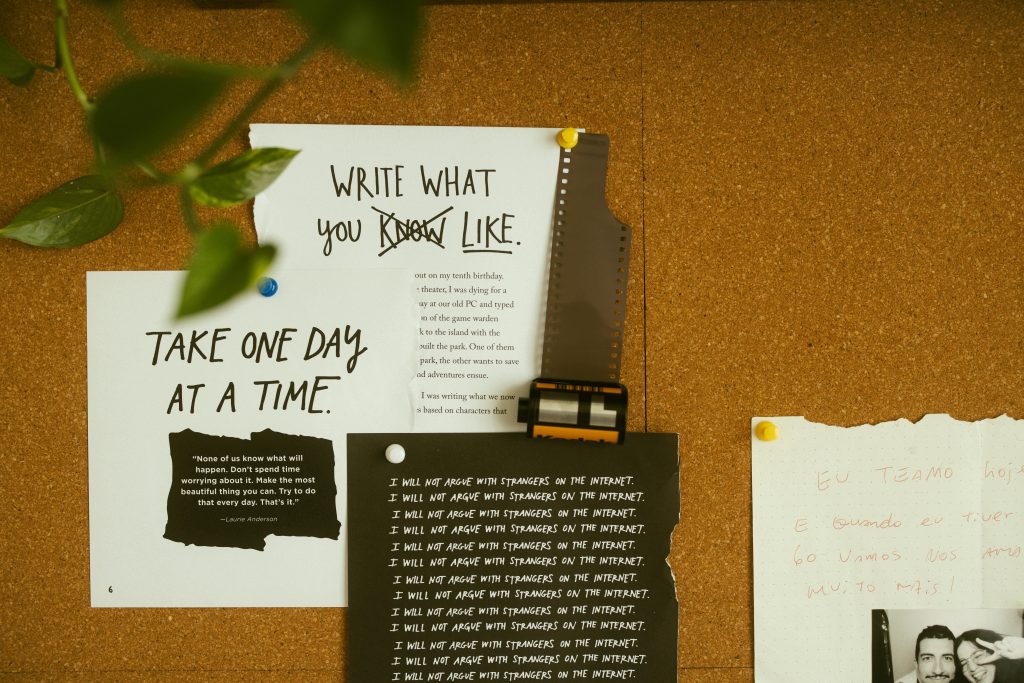 WRITE WHAT
YOU KNOW LIKE.
out on my tenth birthday.
theater, I was dying for a
ay at our old PC and typed
on of the game warden
k to the island with the
built the park. One of them
park, the other wants to save
nd adventures ensue.
I was writing what we now
s based on characters that
TAKE ONE DAY
AT A TIME.
“None of us know what will
happen. Don’t spend time
worrying about it. Make the most
beautiful thing you can. Try to do
that every day. That’s it.”
—Laurie Anderson
6
I WILL NOT ARGUE WITH STRANGERS ON THE INTERNET.
I WILL NOT ARGUE WITH STRANGERS ON THE INTERNET.
I WILL NOT ARGUE WITH STRANGERS ON THE INTERNET.
I WILL NOT ARGUE WITH STRANGERS ON THE INTERNET.
I WILL NOT ARGUE WITH STRANGERS ON THE INTERNET.
I WILL NOT ARGUE WITH STRANGERS ON THE INTERNET.
I WILL NOT ARGUE WITH STRANGERS ON THE INTERNET.
I WILL NOT ARGUE WITH STRANGERS ON THE INTERNET.
I WILL NOT ARGUE WITH STRANGERS ON THE INTERNET.
I WILL NOT ARGUE WITH STRANGERS ON THE INTERNET.
I WILL NOT ARGUE WITH STRANGERS ON THE INTERNET.
I WILL NOT ARGUE WITH STRANGERS ON THE INTERNET.
I WILL NOT ARGUE WITH STRANGERS ON THE INTERNET.
EU TEAMO hoje
E Quando eu tiver
60 VAMOS NOS AMA
MUITO MAIS!